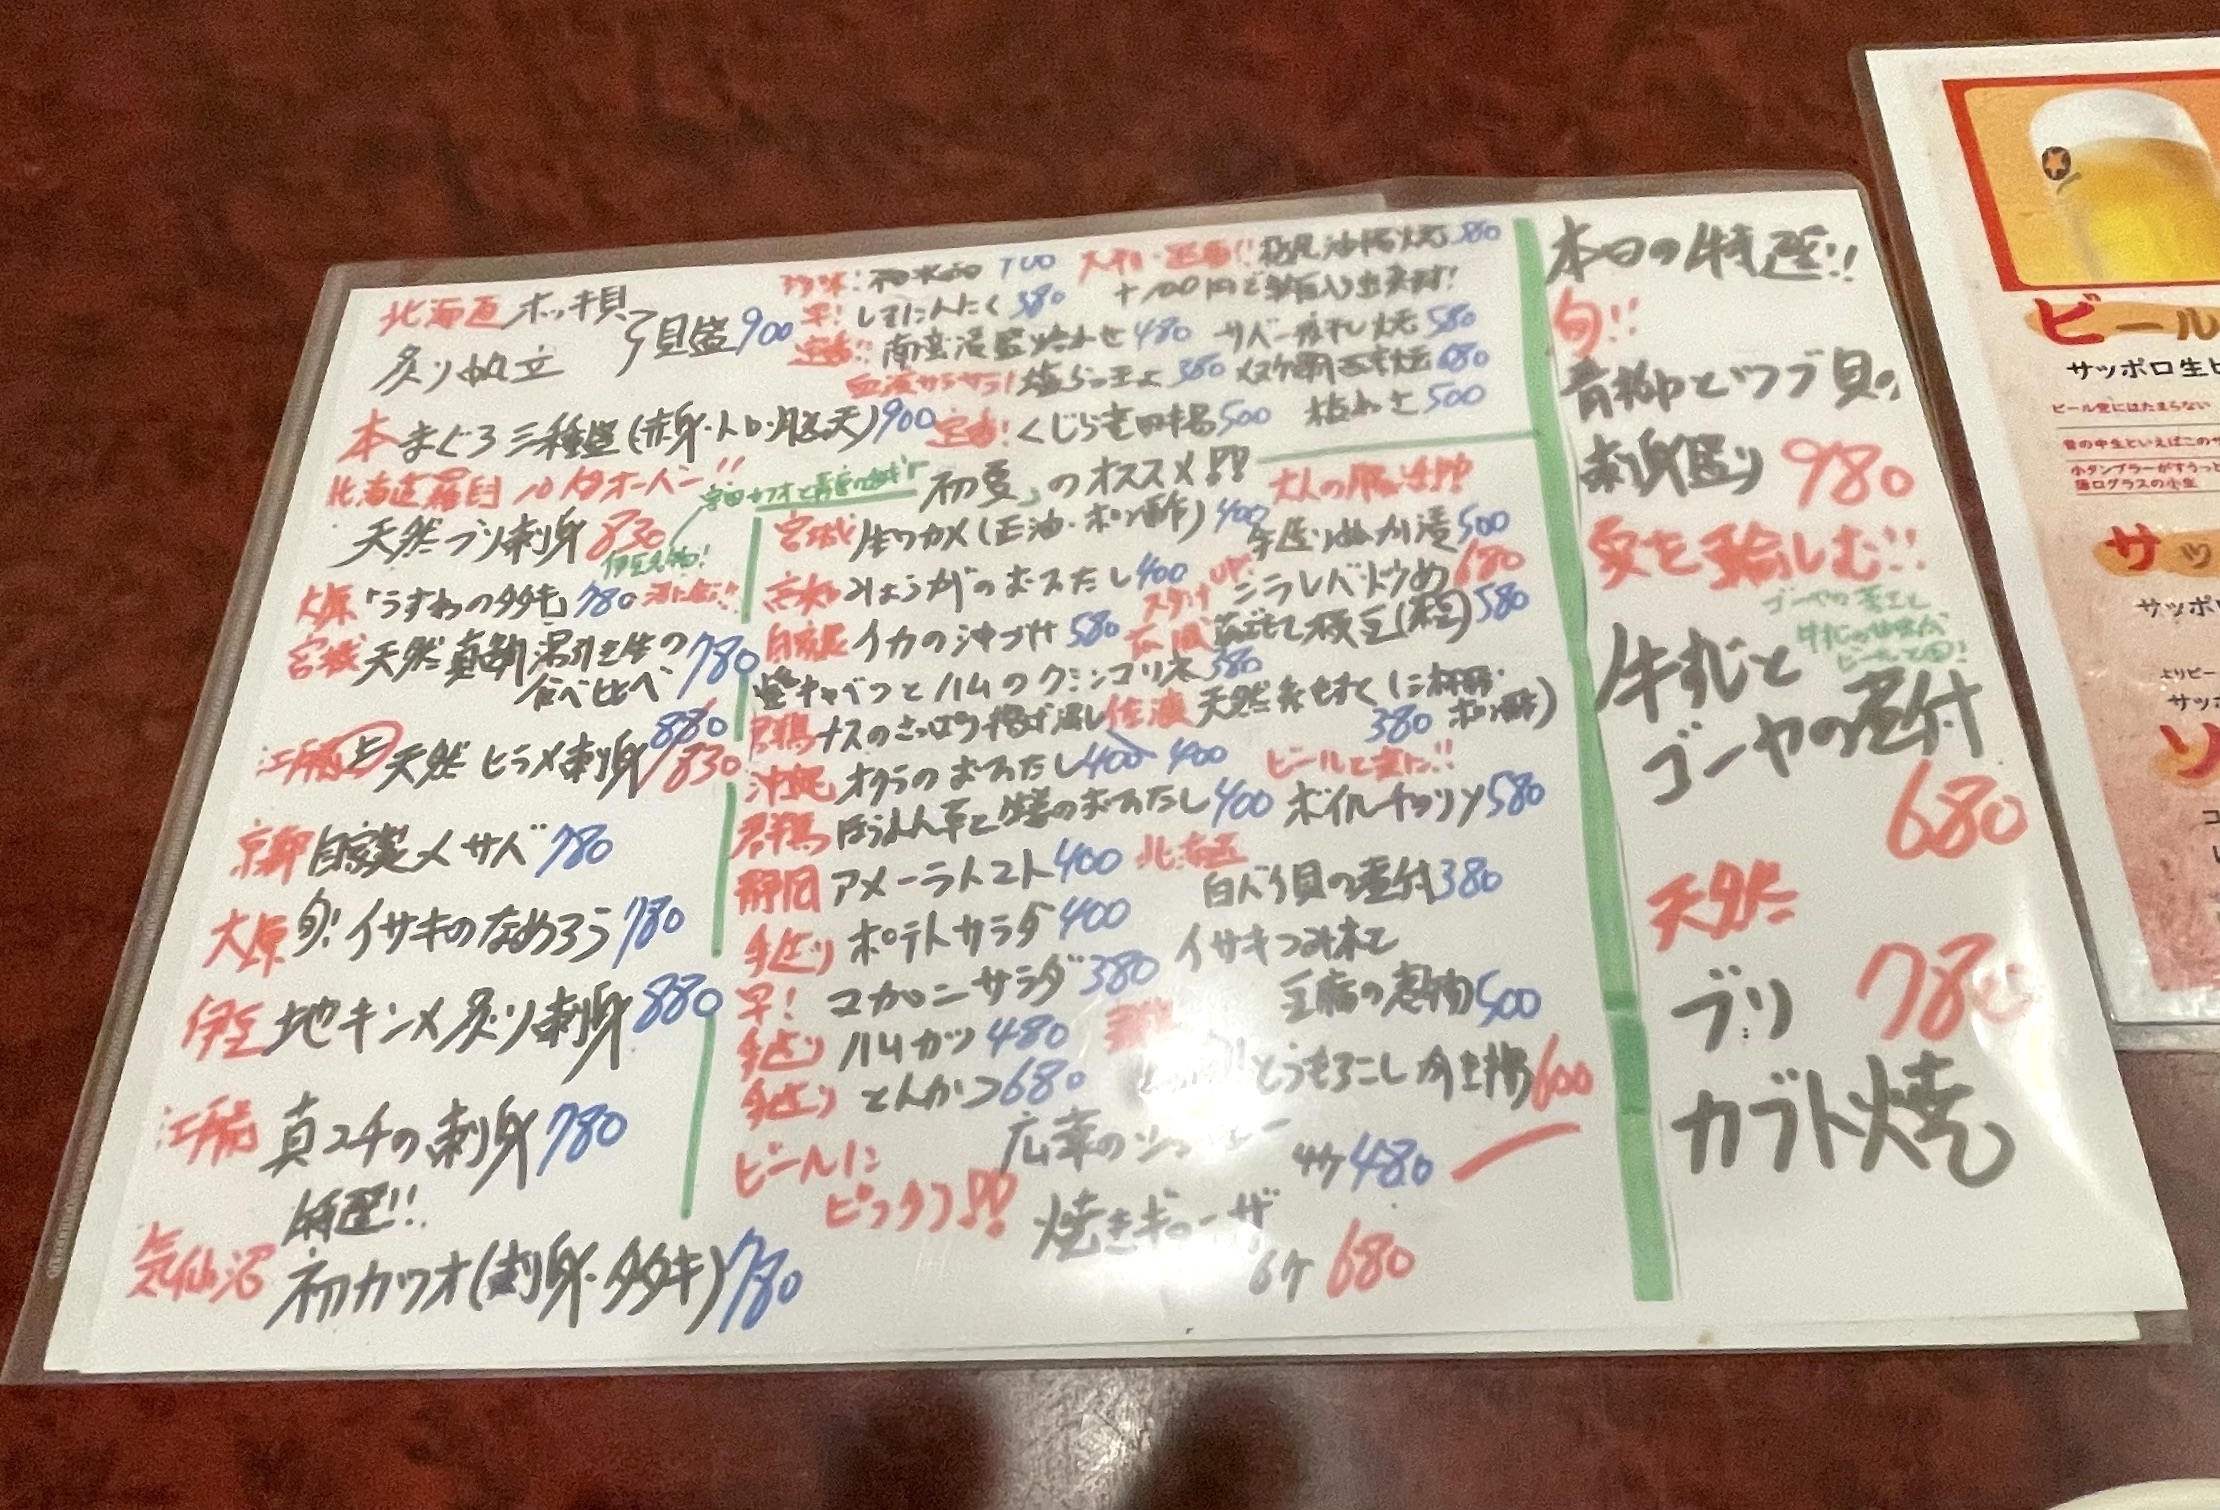 北海道 ホッキ貝
炙り帆立 貝盛 900
本まぐろ三種盛(赤身・トロ・脳天) 900
北海道羅臼 10㌔オーバー!!
天然ブリ刺身 830
大原「うすわのタタキ」 780
宮城 天然真鯛 湯引と生の
食べ比べ 780
江戸前 上 天然ヒラメ刺身 880 830
京都 自家製〆サバ 780
大原 旬!イサキのなめろう 780
伊豆 地キンメ炙り刺身 880
江戸前 真コチの刺身 780
特選!!
気仙沼 初カツオ(刺身・タタキ) 780
珍味!
早! しそにんにく 380
定番!! 南蛮漬盛り合わせ 480
血液サラサラ! 塩らっきょ 380
定番! くじら竜田揚 500
定番!! 栃尾油揚焼 380
+100円で納豆入り出来ます!
サバ一夜干し焼 580
板わさ 500
初夏のオススメ!!
宮城 生ワカメ(正油・ポン酢) 400
高知 みょうがのおひたし 400
自家製 イカの沖づけ 580
塩キャベツとハムのクミンコリネ 380
群馬 ナスのさっぱり揚げ浸し 400
沖縄 オクラのおひたし 400
群馬 ほうれん草と のおひたし 400
静岡 アメーラトマト 400
手造り ポテトサラダ 400
早! マカロニサラダ 380
手造り ハムカツ 480
手造り とんかつ 680
ビールに
ピッタリ!!
大人の
手造り 漬 500
スタミナUP! ニラレバ炒め 680
広島 580
佐渡 天然糸もずく(三杯酢・
ポン酢) 380
ビールで更に!!
ボイル 580
北海道
白バイ貝の煮付 380
イサキつみれと
豆腐の煮物 500
とうもろこし 揚 600
広東の
4ケ 480
焼きギョーザ
6ケ 680
本日の特選!!
旬!!
青柳とツブ貝の
刺身盛り 980
夏を愉しむ!!
牛すじと
ゴーヤの煮付
680
天然
ブリ 780
カブト焼
ビール
サッポロ生ビ
ビール党にはたまらない
昔の中生といえばこのサ
小タンブラーがすうっと
薄口グラスの小生
サッ
サッポロ
よりビー
サッポ
ソ
コ